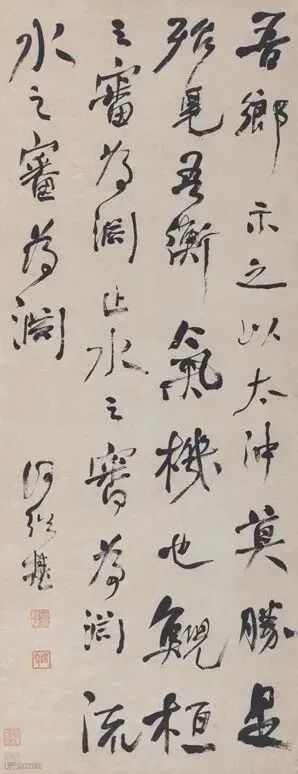 吾鄉示之以太沖莫勝是
殆見吾衡氣機也鯢桓
之審為淵止水之審為淵流
水之審為淵
何紹基